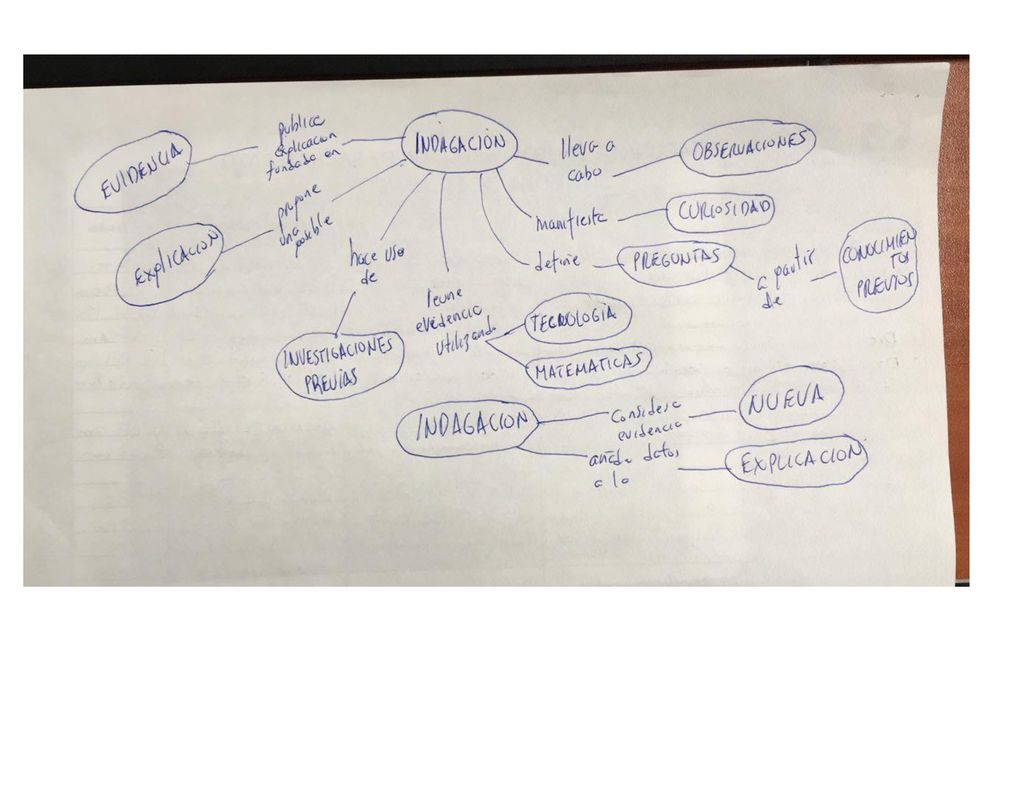 INDAGACIÓN
publica
explicacion
fundada en
EVIDENCIA
propone
una
posible
EXPLICACION
hace uso
de
INVESTIGACIONES
PREVIAS
reune
evidencia
utilizando
TECNOLOGÍA
MATEMATICAS
define
PREGUNTAS
a partir
de
CONOCIMIEN
TOS
PREVIOS
manifiesta
CURIOSIDAD
lleva a
cabo
OBSERVACIONES
INDAGACION
Considera
evidencia
NUEVA
añade datos
a la
EXPLICACION